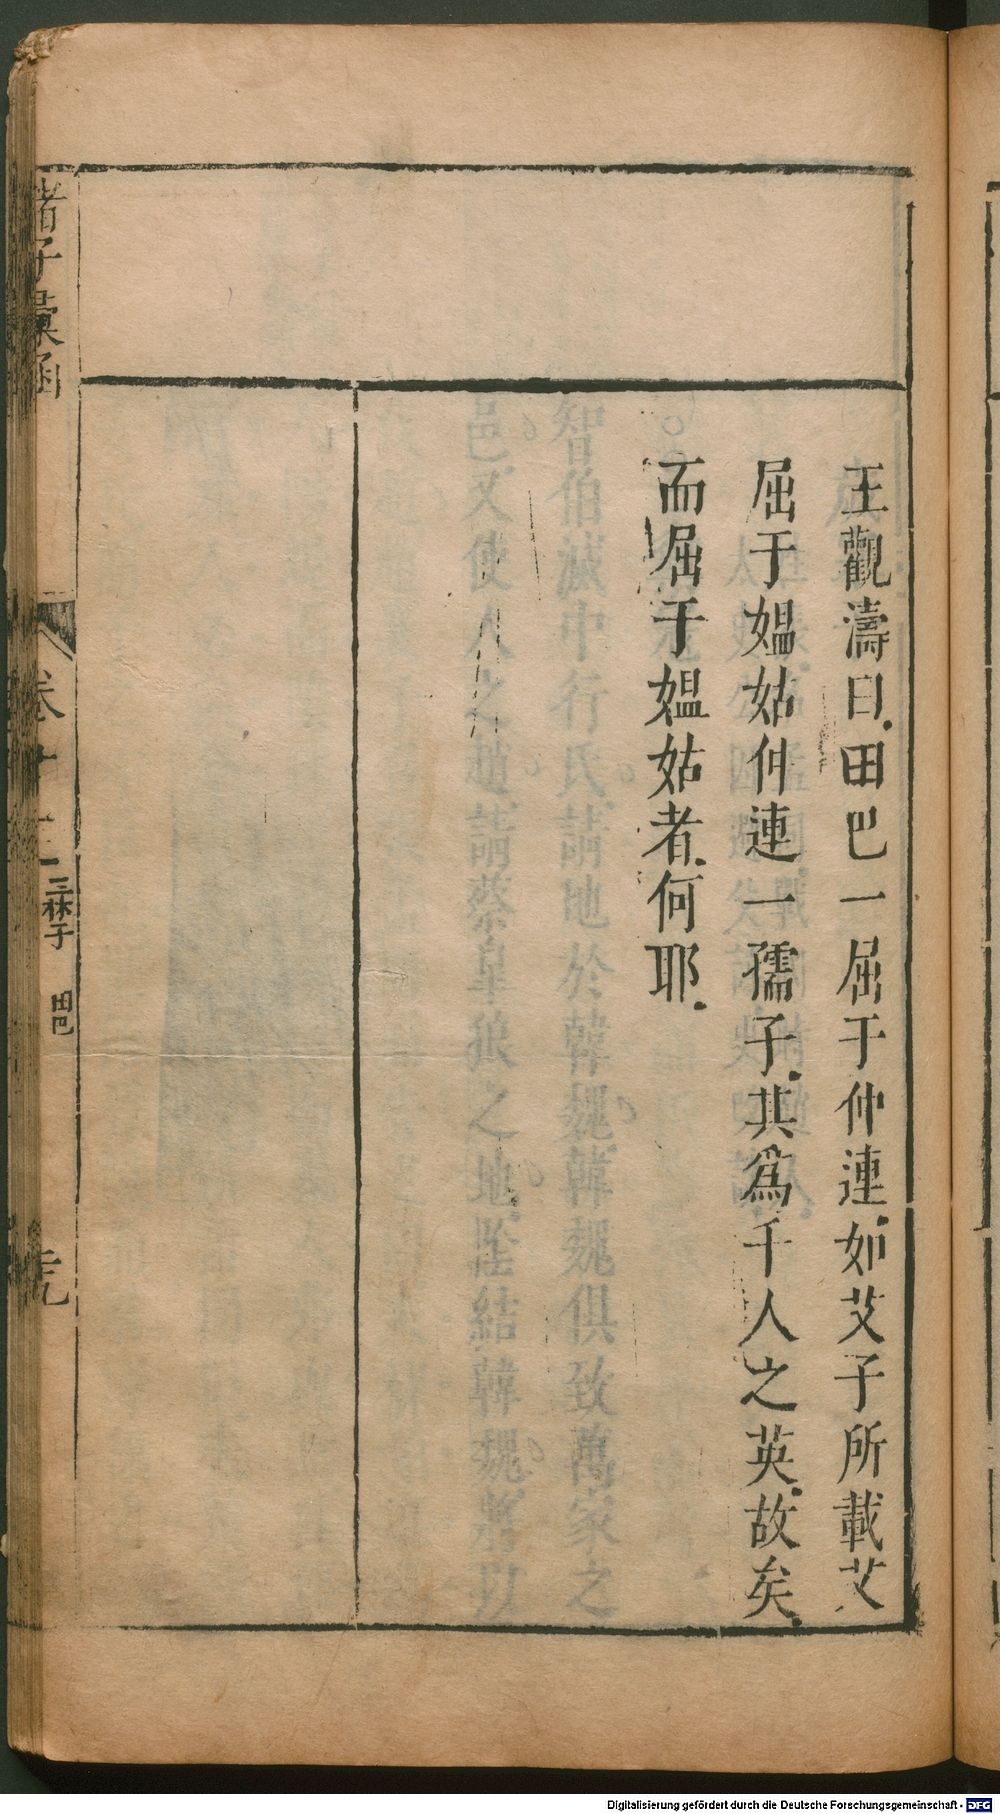 王觀濤曰田巴一屈于仲連如艾子所載艾
屈于媪姑仲連一孺子其爲千人之英故矣
而屈于媪姑者何耶
諸子彙函
卷十二
三柱子 田巴
Digitalisierung gefördert durch die Deutsche Forschungsgemeinschaft - DFG